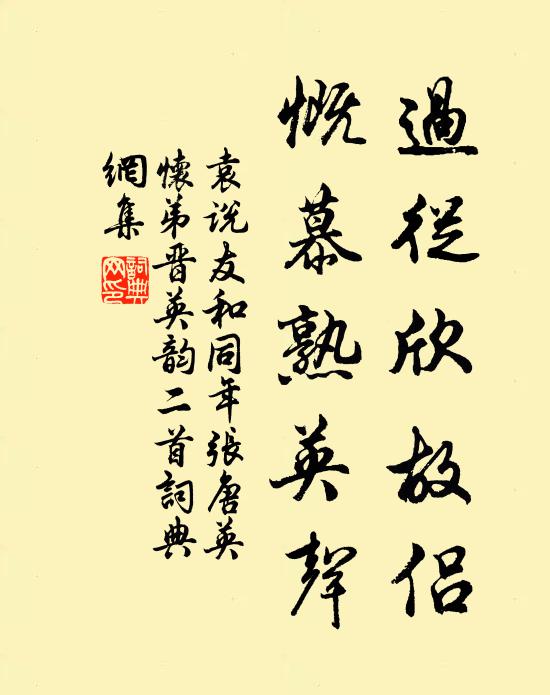 過從欣故侶
慨慕熟英聲
袁説友和同年張唐英
懷弟晋英韵二首詞典
網集
詞典
网印